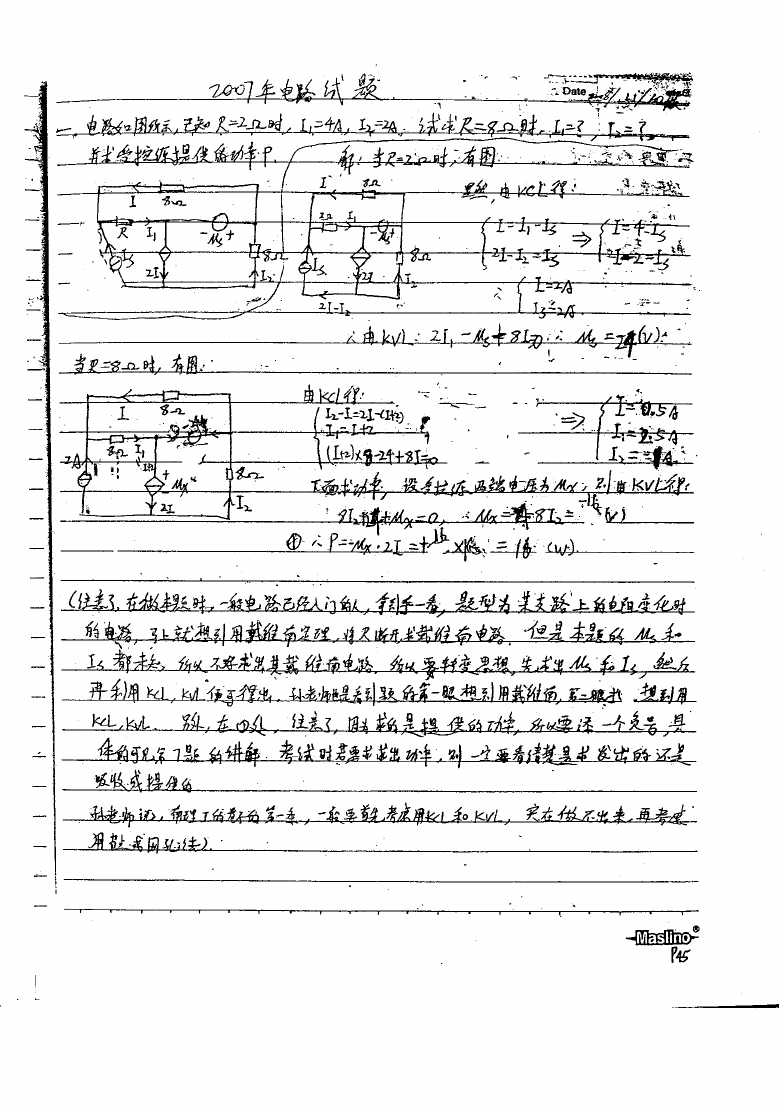 2007年电路试题
Date
一、电路如图所示,已知R=2Ω时,I₁=4A,I₂=2A。试求R=8Ω时,I₁=?,I₂=?
并求受控源提供的功率P.
解:当R=2Ω时,有图
显然,由KCL得:
I 8Ω
R I₁ - Us +
Is 2I I₂ 8Ω
I 8Ω
2Ω I₁ - Us +
Is 2I I₂ 8Ω
2I-I₂
I=I₁-Is
2I-I₂=Is
⇒
I=4-Is
2I-2=Is
∴ I=2A
Is=2A
∴由KVL: 2I₁-Us+8I=0 ∴ Us=24(V)
当R=8Ω时,有图:
I 8Ω
8Ω I₁ I+2
2A + Ux - 2I I₂ 8Ω
由KCL得:
I₂-I=2I-(I+2)
I₁=I+2
(I+2)×8-24+8I=0
⇒
I=0.5A
I₁=2.5A
I₂=-1A
下面求功率,设受控源两端电压为Ux,则由KVL得:
8I₂ Ux=0, ∴Ux= 8I₂= (V)
① ∴P=-Ux·2I= = (W).
(注意了,在做本题时,一般电路已经入门的人,拿到手一看,题型为某支路上的电阻变化时
的电路,马上就想到用戴维南定理,将R断开求戴维南电路。但是本题的Us和
Is都未知,所以不好求出其戴维南电路。所以要转变思想,先求出Us和Is,然后
再利用KCL,KVL便可得出。孙老师也是看到题的第一眼想到用戴维南,第二眼 想到用
KCL,KVL. 另外,在①处,注意了,因为求的是提供的功率,所以要添一个负号,具
体的可见第7题的讲解。考试时若要求求出功率,则一定要看清楚是求发出的还是
吸收或提供的
孙老师说, 的第一条,一般要首先考虑用KCL和KVL,实在做不出来,再考虑
用 网孔法)
Maslino®
P45